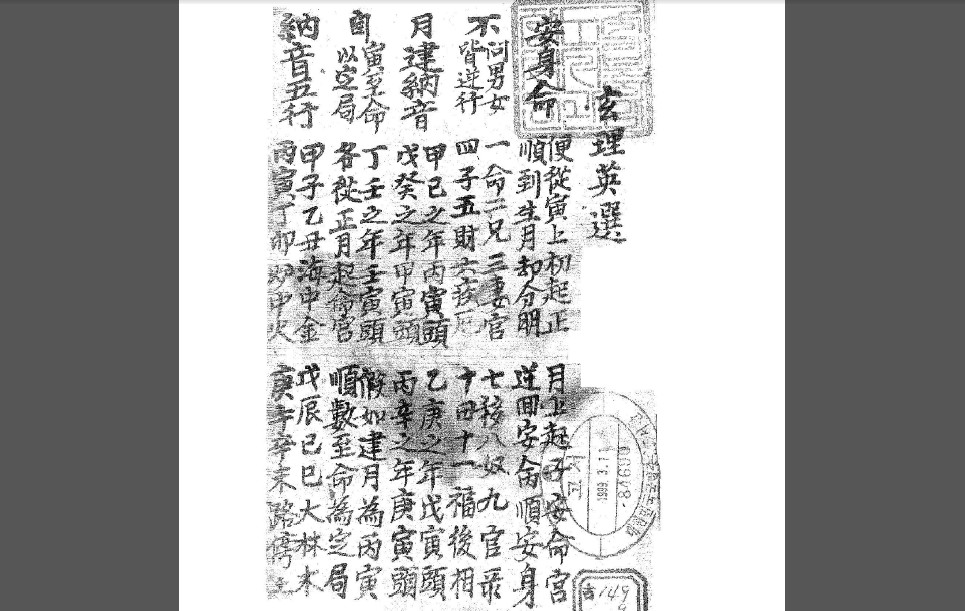 玄理英選
安身命
便從寅上初起正 月上起子安命宮
順到生月却分明 逆回安命順安身
不問男女皆逆行
一命二兄三妻官 七移八奴九官彔
四子五財六疾厄 十田十一福後相
月建納音
甲己之年丙寅頭 乙庚之年戊寅頭
戊癸之年甲寅頭 丙辛之年庚寅頭
自寅至命以定局
丁壬之年壬寅頭 假如建月為丙寅
各從正月起命宮 順數至命為定局
納音五行
甲子乙丑海中金 戊辰己巳大林木
丙寅丁卯炉中火 庚午辛未路傍土
1999.3.11
古149